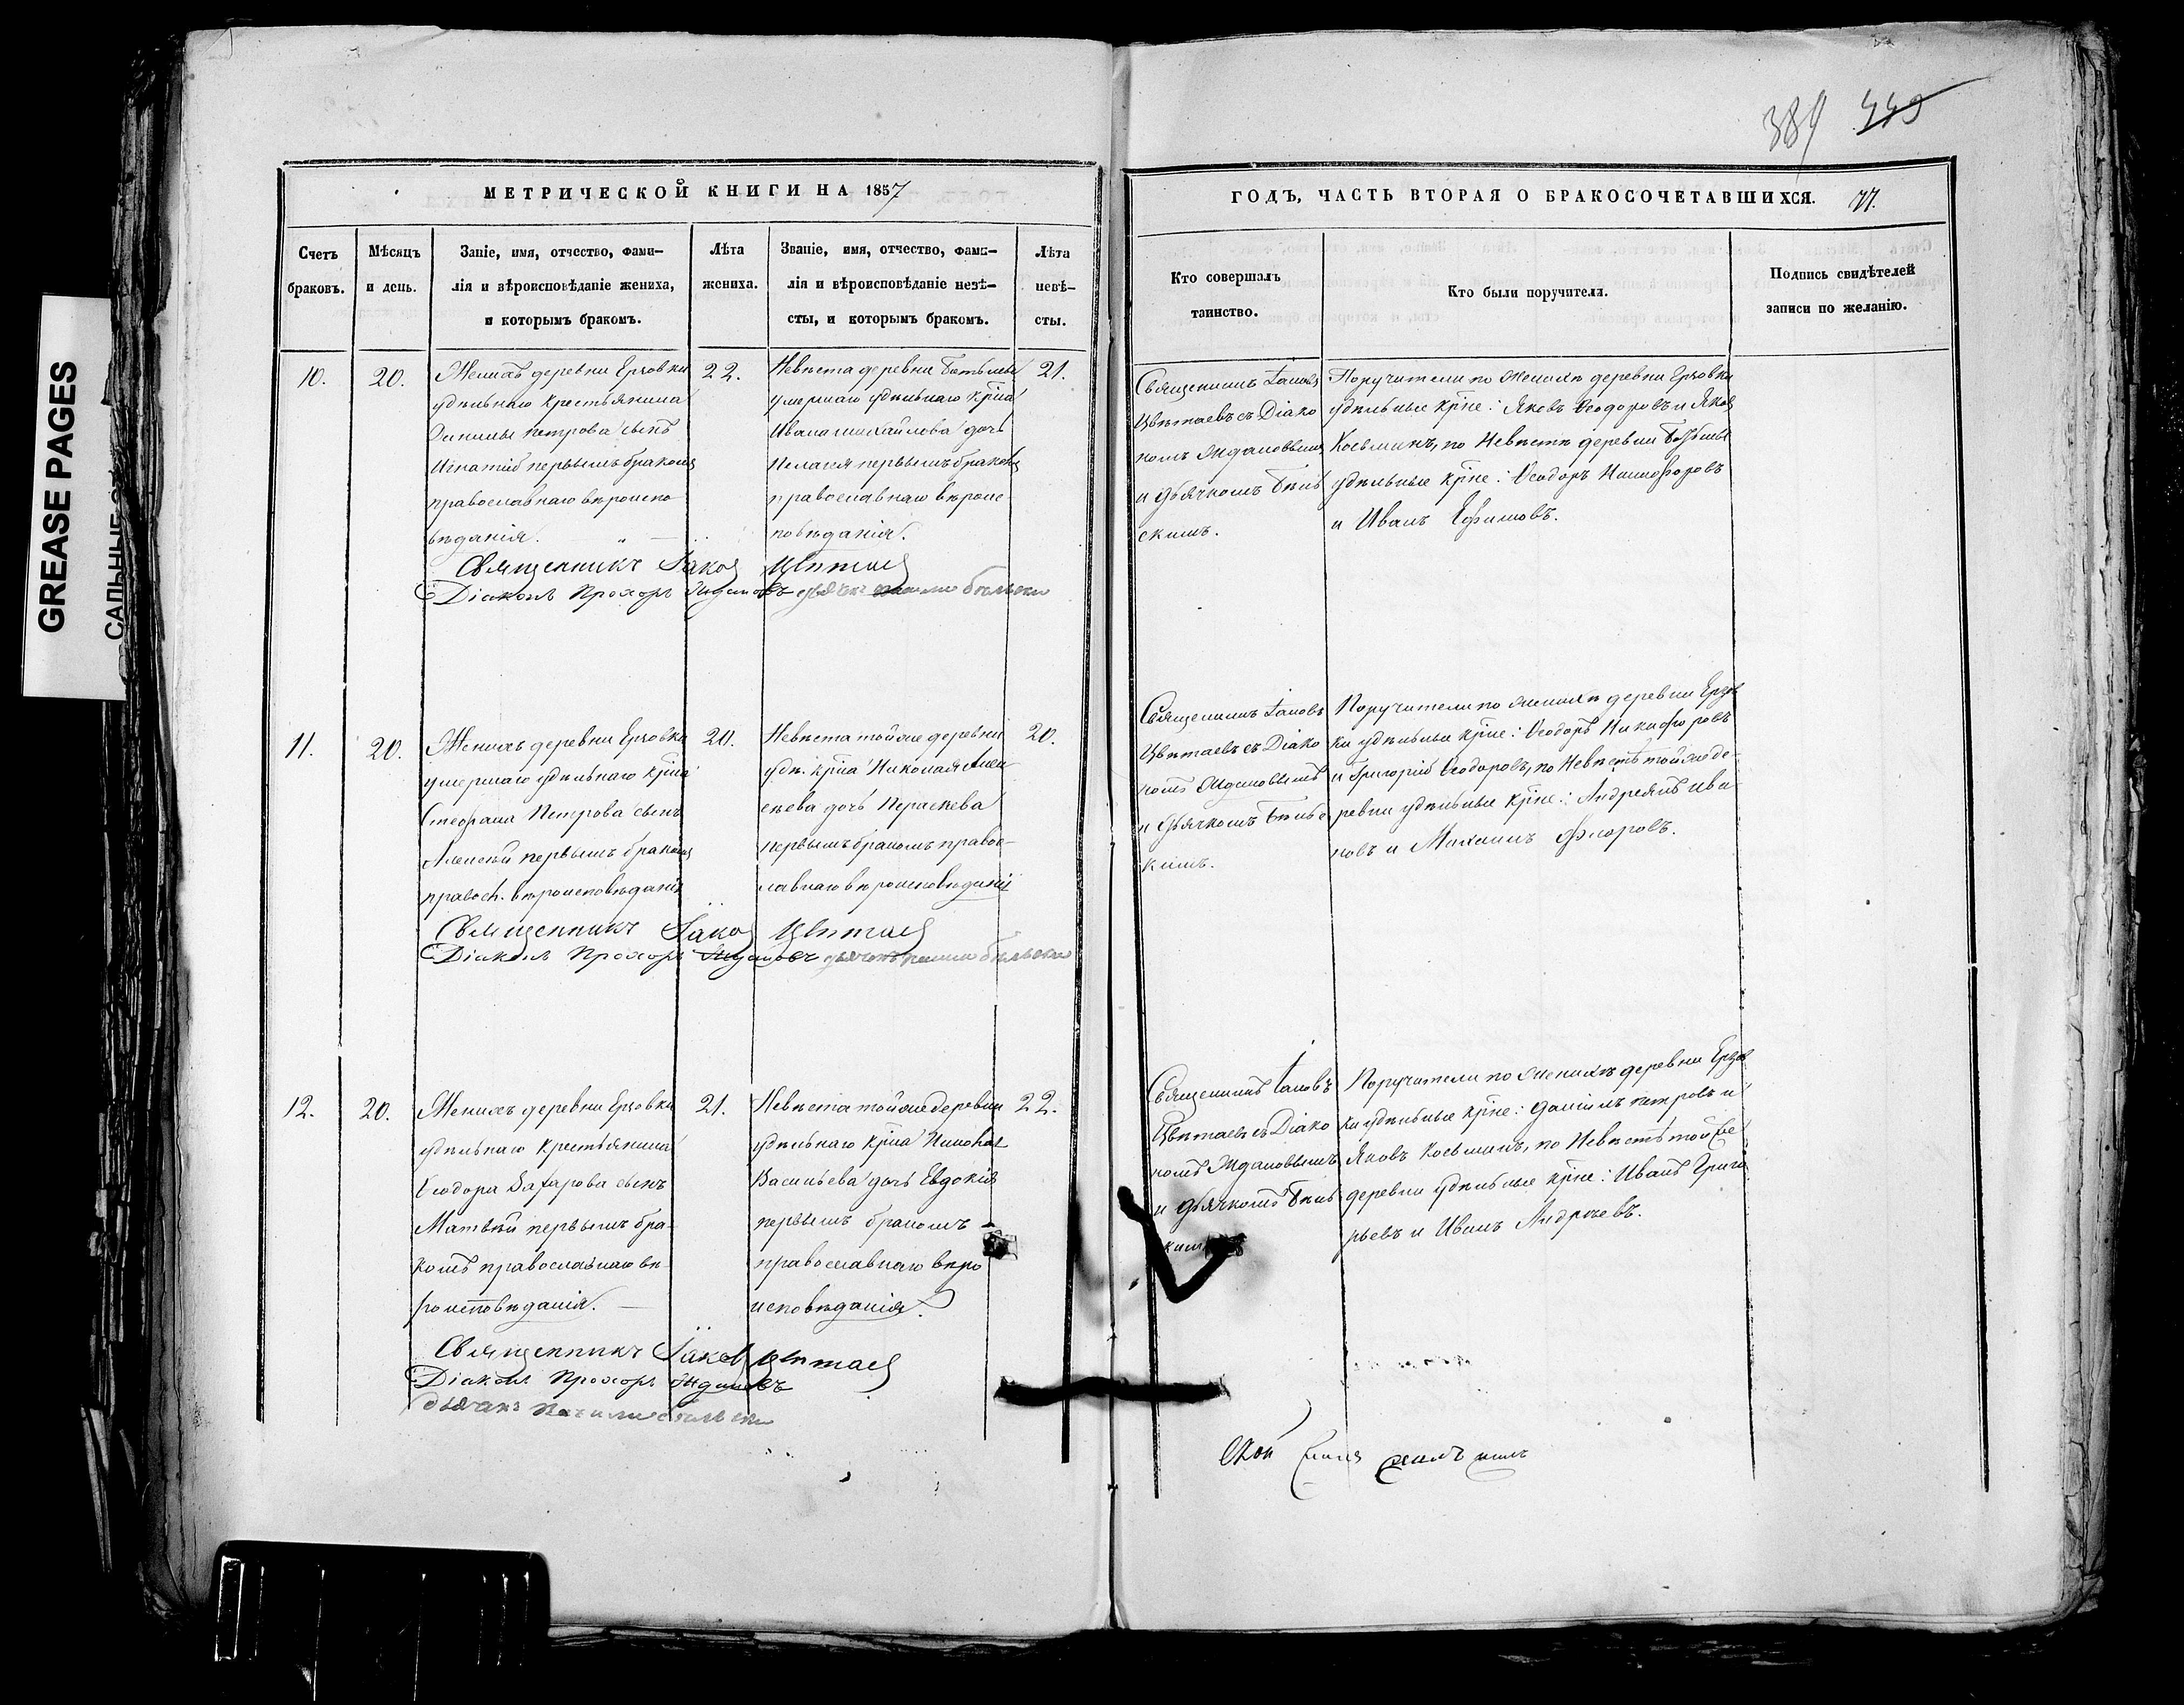 GREASE PAGES
САЛЬНЫЕ
МЕТРИЧЕСКОЙ КНИГИ НА 1857
Счетъ браковъ.
Мѣсяцъ и день.
Заніе, имя, отчество, фами-
лія и вѣроисповѣданіе жениха,
и которымъ бракомъ.
Лѣта
жениха.
Званіе, имя, отчество, фами-
лія и вѣроисповѣданіе невѣ-
сты, и которымъ бракомъ.
Лѣта
невѣ-
сты.
10.
20.
Женихъ деревни Ерзовки
удѣльнаго крестьянина
Петрова сынъ
Игнатій первымъ бракомъ
православнаго вѣроиспо-
вѣданія.
22.
Невѣста деревни
умершаго удѣльнаго кр҃на
Ивана Михайлова дочь
Пелагея первымъ бракомъ
православнаго вѣроис-
повѣданія.
21.
Священникъ Іаковъ Цвѣтаевъ
Діаконъ Прохоръ Ждановъ дьячекъ Бѣльски
11.
20.
Женихъ деревни Ерзовки
умершаго удѣльнаго кр҃на
Стефана Петрова сынъ
Алексѣй первымъ бракомъ
правосл. вѣроисповѣданія
20.
Невѣста тойже деревни
удѣ. кр҃на Николая Алек-
сѣева дочь Параскева
первымъ бракомъ правос-
лавнаго вѣроисповѣданія
20.
Священникъ Іаковъ Цвѣтаевъ
Діаконъ Прохоръ Ждановъ дьячекъ Бѣльски
12.
20.
Женихъ деревни Ерзовки
удѣльнаго крестьянина
Ѳеодора Захарова сынъ
Матвѣй первымъ бра-
комъ православнаго вѣ-
роисповѣданія.
21.
Невѣста тойже деревни
удѣльнаго кр҃на
Васильева дочь Евдокія
первымъ бракомъ
православнаго вѣро
исповѣданія.
22.
Священникъ Іаковъ Цвѣтаевъ
Діаконъ Прохоръ Ждановъ
дьячекъ Бѣльски
384 449
ГОДЪ, ЧАСТЬ ВТОРАЯ О БРАКОСОЧЕТАВШИХСЯ.
Кто совершалъ
таинство.
Кто были поручители.
Подпись свидѣтелей
записи по желанію.
Священникъ Іаковъ
Цвѣтаевъ съ Діако
номъ Ждановымъ
и дьячкомъ Бѣль
скимъ.
Поручители по женихѣ деревни Ерзовки
удѣльные кр҃не: Яковъ Ѳеодоровъ и Яковъ
Косьминъ, по Невѣстѣ деревни
удѣльные кр҃не: Ѳеодоръ Никифоровъ
и Иванъ Ефимовъ.
Священникъ Іаковъ
Цвѣтаевъ съ Діако
номъ Ждановымъ
и дьячкомъ Бѣльс
кимъ.
Поручители по женихѣ деревни Ерзов
ки удѣльные кр҃не: Ѳеодоръ Никифоровъ
и Григорій Ѳеодоровъ, по Невѣстѣ тойже де-
ревни удѣльные кр҃не: Андреянъ Ива
новъ и Михаилъ Флоровъ.
Священникъ Іаковъ
Цвѣтаевъ съ Діако
номъ Ждановымъ
и дьячкомъ Бѣль
скимъ
Поручители по женихѣ деревни Ерзов
ки удѣльные кр҃не: Даніилъ Петровъ и
Яковъ Косьминъ, по Невѣстѣ тойже
деревни удѣльные кр҃не: Иванъ Григо
рьевъ и Иванъ Андреевъ.